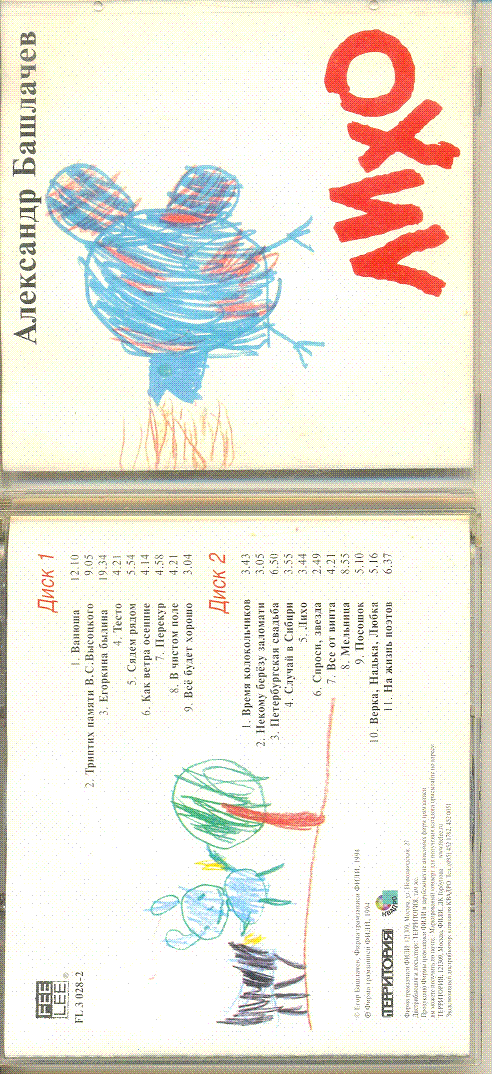 Александр Башлачев
ЛИХО
Диск 1
1. Ванюша 12.10
2. Триптих памяти В.С.Высоцкого 9.05
3. Егоркина былина 19.34
4. Тесто 4.21
5. Сядем рядом 5.54
6. Как ветра осенние 4.14
7. Перекур 4.58
8. В чистом поле 4.21
9. Всё будет хорошо 3.04
Диск 2
1. Время колокольчиков 3.43
2. Некому берёзу заломати 3.05
3. Петербургская свадьба 6.50
4. Случай в Сибири 3.55
5. Лихо 3.44
6. Спроси, звезда 2.49
7. Все от винта 4.21
8. Мельница 8.55
9. Посошок 5.10
10. Верка, Надька, Любка 5.16
11. На жизнь поэтов 6.37
FEE
LEE ®
FL 3 028-2
© Егор Башлачев, Фирма грамзаписи ФИЛИ, 1994
℗ Фирма грамзаписи ФИЛИ, 1994
ТЕРРИТОРИЯ
КВАДРО